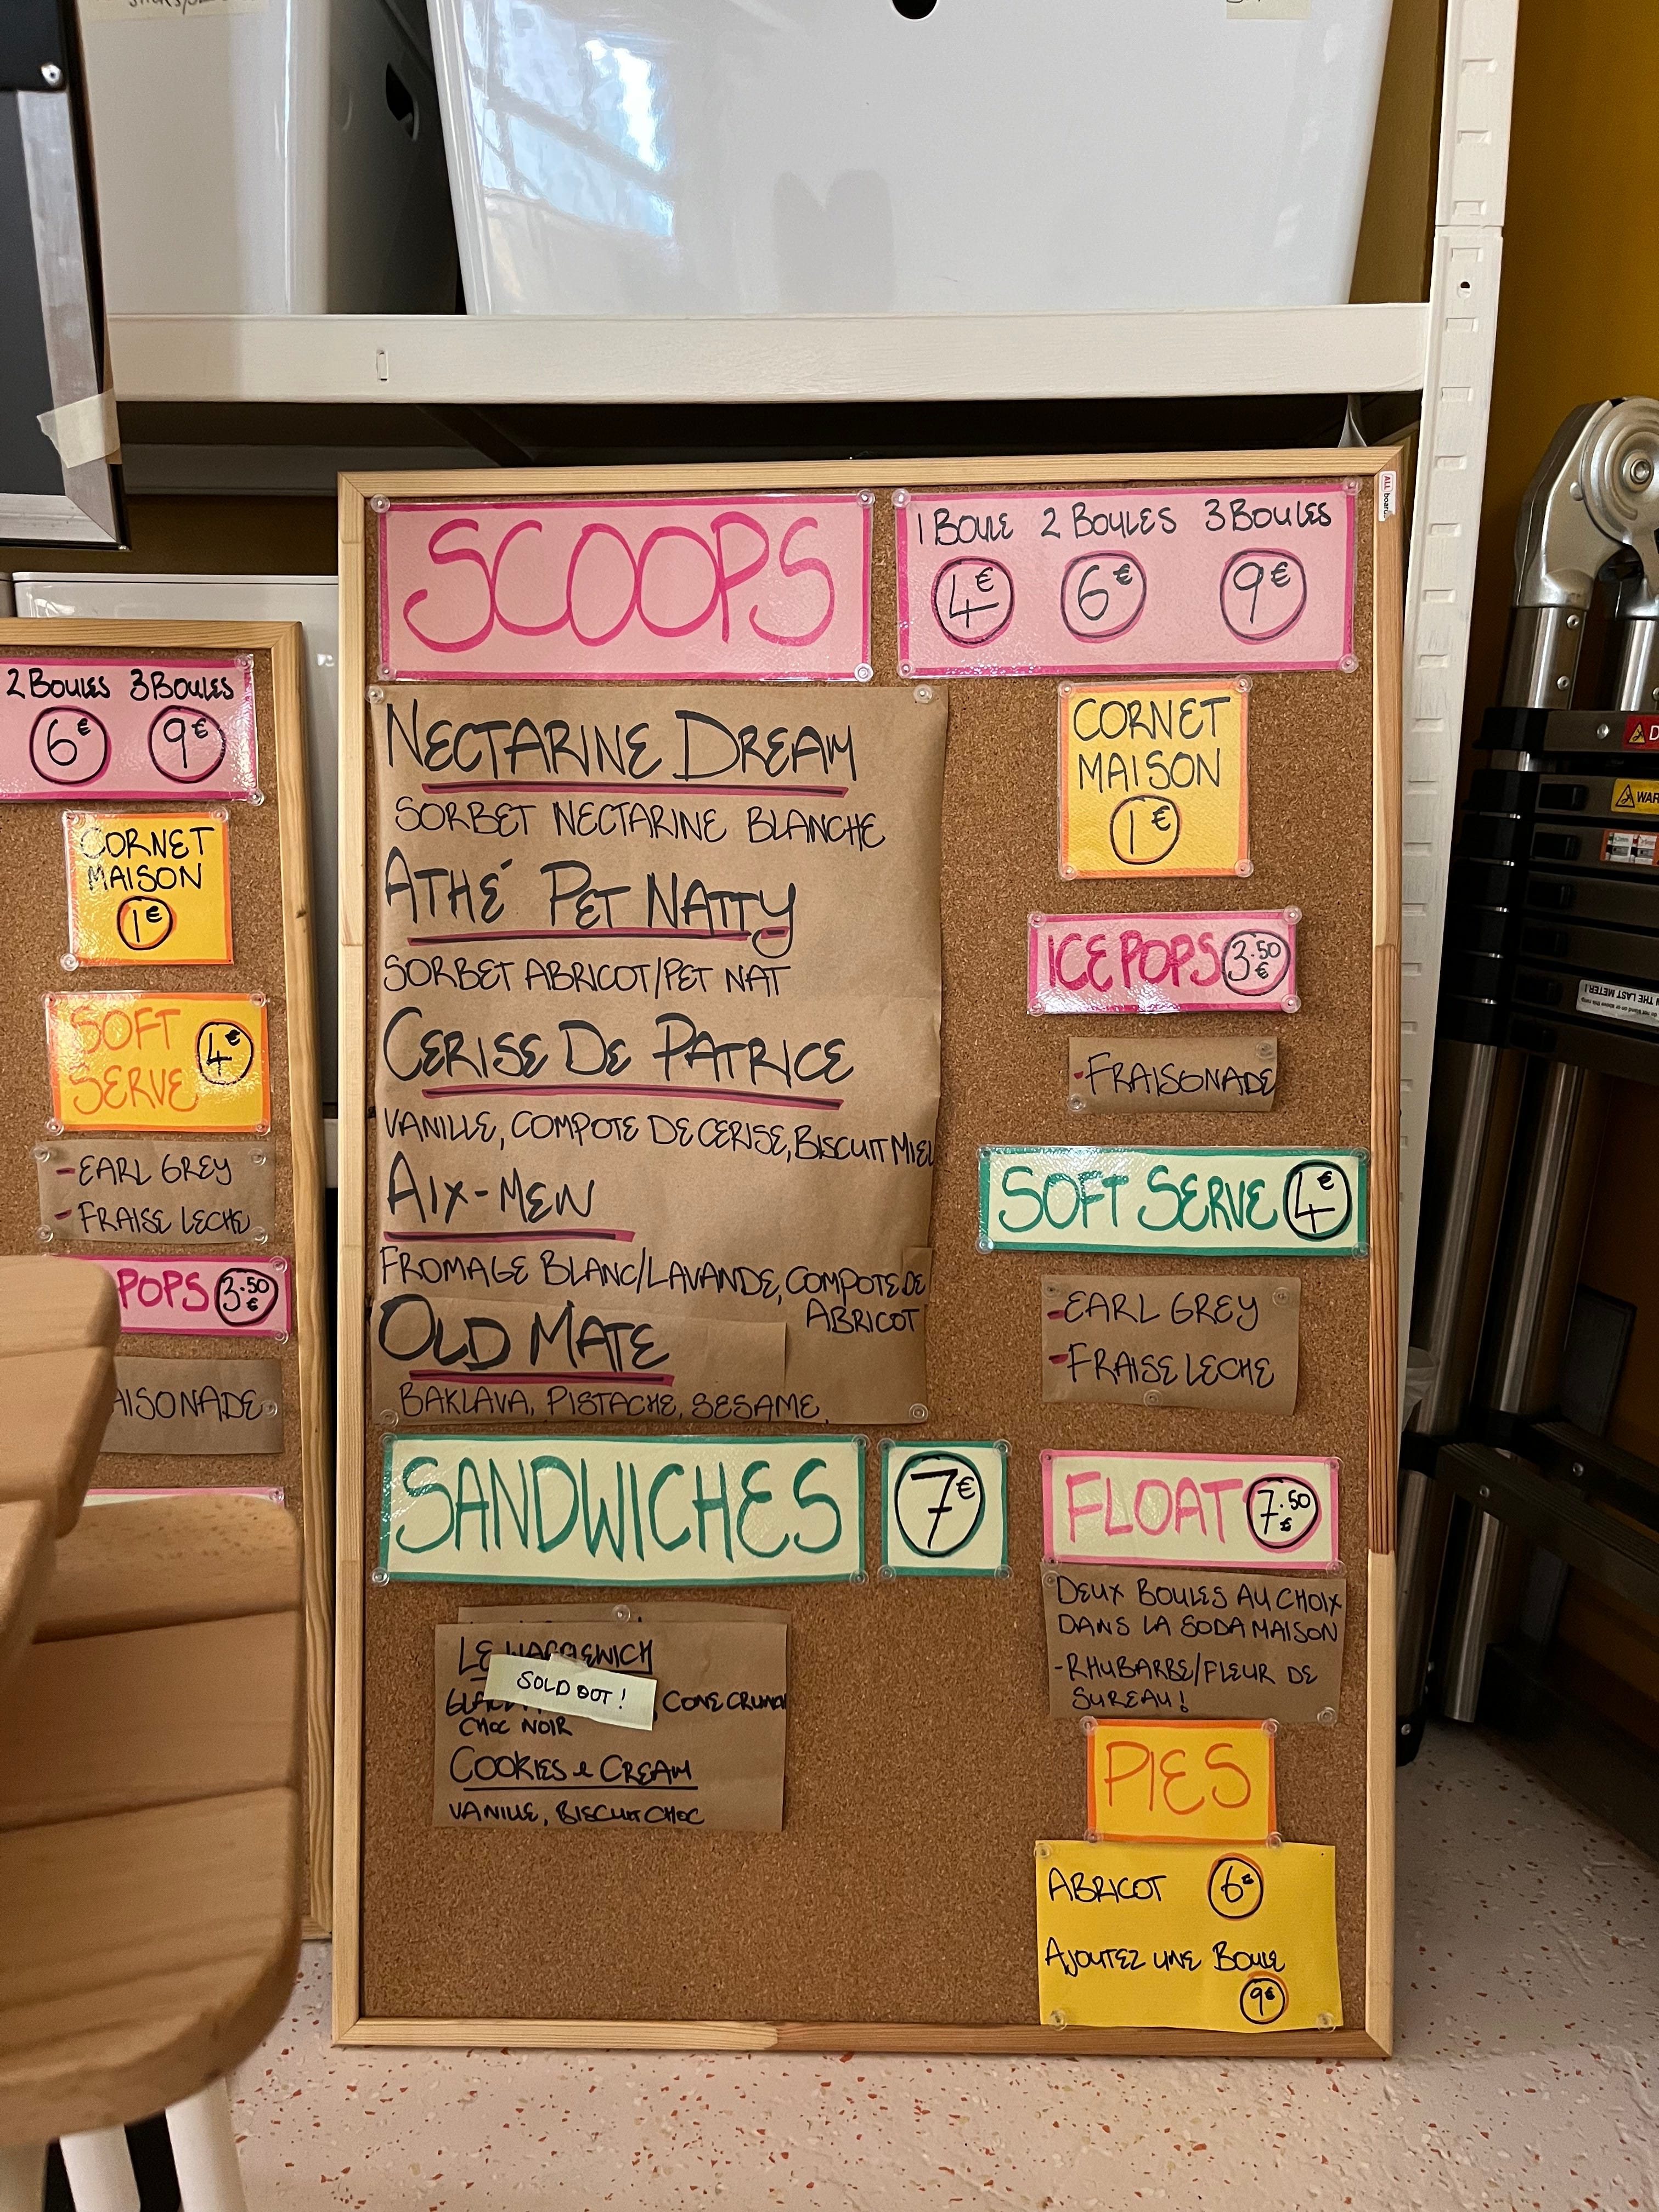 SCOOPS
1 BOULE 2 BOULES 3 BOULES
4€ 6€ 9€
NECTARINE DREAM
SORBET NECTARINE BLANCHE
ATHÉ PET NATTY
SORBET ABRICOT/PET NAT
CERISE DE PATRICE
VANILLE, COMPOTE DE CERISE, BISCUIT MIEL
AIX-MEN
FROMAGE BLANC/LAVANDE, COMPOTE DE
ABRICOT
OLD MATE
BAKLAVA, PISTACHE, SESAME,
SANDWICHES 7€
LE WAFFLEWICH
SOLD OUT!
CONE CRUNCH
CHOC NOIR
COOKIES & CREAM
VANILLE, BISCUIT CHOC
CORNET
MAISON
1€
ICE POPS 3.50€
-FRAISONADE
SOFT SERVE 4€
-EARL GREY
-FRAISE LECHE
FLOAT 7.50€
DEUX BOULES AU CHOIX
DANS LA SODA MAISON
-RHUBARBE/FLEUR DE
SUREAU!
PIES
ABRICOT 6€
AJOUTEZ UNE BOULE
9€
ALL board
2 BOULES 3 BOULES
6€ 9€
CORNET
MAISON
1€
SOFT
SERVE 4€
-EARL GREY
-FRAISE LECHE
POPS 3.50€
AISONADE
WAR
THE LAST METER!